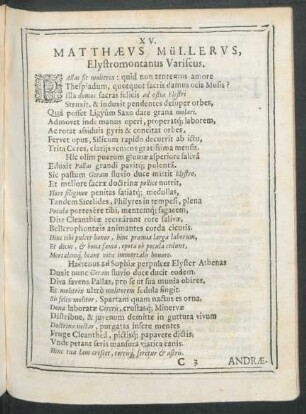 XV.
MATTHÆVS MüLLERVS,
Elystromontanus Variscus.
PAllas sit molitrix: quid non tentemus amore
Thespiadum, quotquot sacris damus ocia Musis?
Illa domus sacras felicis ad ostia Elystri
Struxit, & induxit pendentes desuper orbes,
Quî posset Ligyûm Saxo dare grana molari.
Admovet inde manus operi, properatq́; laborem,
Ac rotat assiduis gyris & concitat orbes,
Fervet opus, Silicum rapido decurrit ab ictu,
Trita Ceres, clarisq́; veniens gratissima mensis.
Hîc olim puerum
Eduxit Pallas grandi pavitq́; polentâ.
Sic pastum Geram fluvio duce mittit Elystro,
Et meliore sacræ doctrinæ pollice notrit,
Hore siligineo penitus satiatq́; medullas,
Tandem Sicelides, Philyres in tempesi, plena
Pocula porrexêre tibi, mentemq́; sagacem,
Dite Cleanthiæ recreârunt rore salivæ,
Bellerophonteis animantes corda cicutis.
Hinc tibi pulcer honor, hinc præmia larga laborum,
Et dictis, & bona fama, epota ob pocula crêunt,
Mortalemq́; beant vitæ immortalis honore.
Hactenus ad Sophiæ perpulsæ Elyster Athenas
Duxit nunc Geram fluvio duce ducit eodem.
Diva favens Pallas, pro se ut sua munia obires,
Et molitrix ultrò molitorem sedula fingit.
Sis felix molitor, Spartam quam nactus es orna.
Dona laboratæ Cereris, crustasq́; Minervæ
Distribue, & juvenum demitte in guttura vivum
Doctrinæ nectar, purgatas insere mentes
Fruge Cleantheâ, pictisq́; papavere dictis,
Vnde petant seris mansura viatica canis.
Hinc tua lans crescet, terrisq́; feretur & astris.
C 3
ANDRÆ-